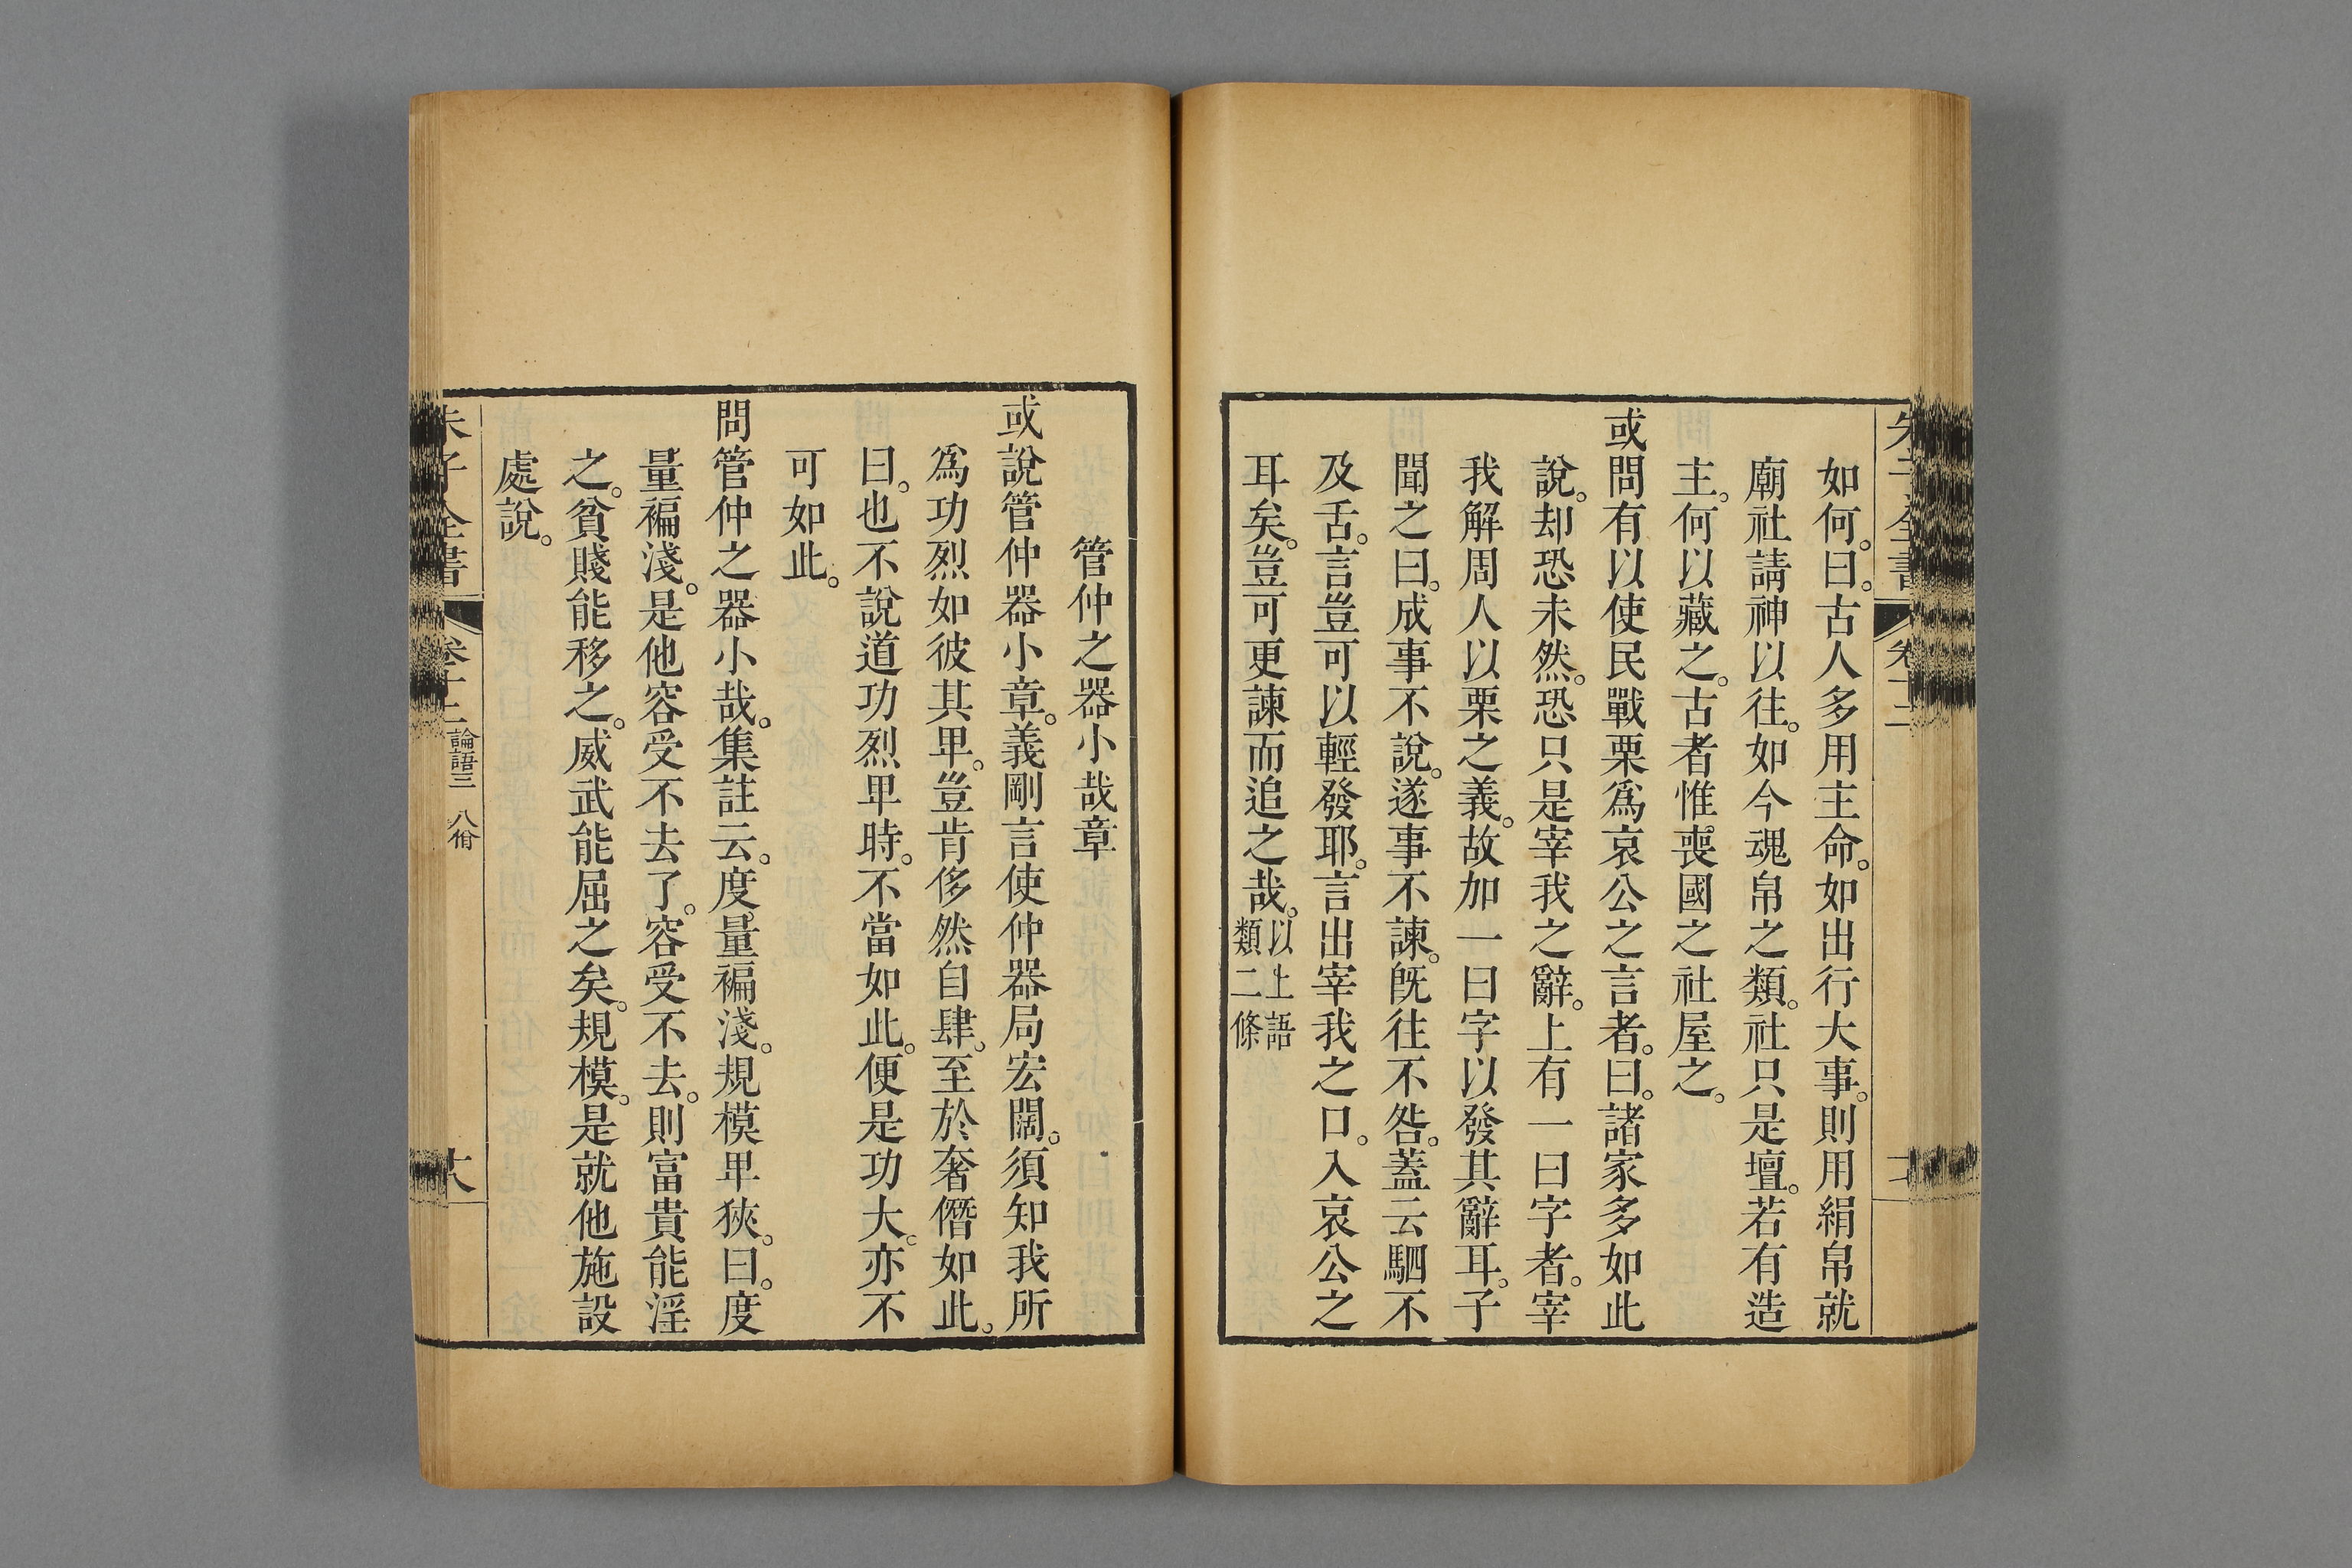 如何。曰。古人多用主命。如出行大事。則用絹帛就
廟社請神以往。如今魂帛之類。社只是壇。若有造
主。何以藏之。古者惟喪國之社屋之。
或問有以使民戰栗爲哀公之言者。曰。諸家多如此
說。却恐未然。恐只是宰我之辭。上有一曰字者。宰
我解周人以栗之義。故加一曰字以發其辭耳。子
聞之曰。成事不說。遂事不諫。旣往不咎。蓋云駟不
及舌。言豈可以輕發耶。言出宰我之口。入哀公之
耳矣。豈可更諫而追之哉。以上語類二條
管仲之器小哉章
或說管仲器小章。義剛言使仲器局宏闊。須知我所
爲功烈如彼其卑。豈肯侈然自肆。至於奢僭如此。
曰。也不說道功烈卑時。不當如此。便是功大。亦不
可如此。
問管仲之器小哉。集註云。度量褊淺。規模卑狹。曰。度
量褊淺。是他容受不去了。容受不去。則富貴能淫
之。貧賤能移之。威武能屈之矣。規模。是就他施設
處說。
朱子全書 卷十二 論語三 八佾